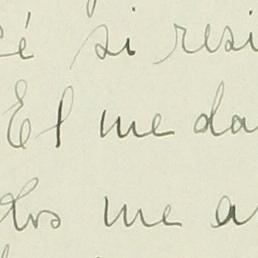 é si resi
El me da
dos me a